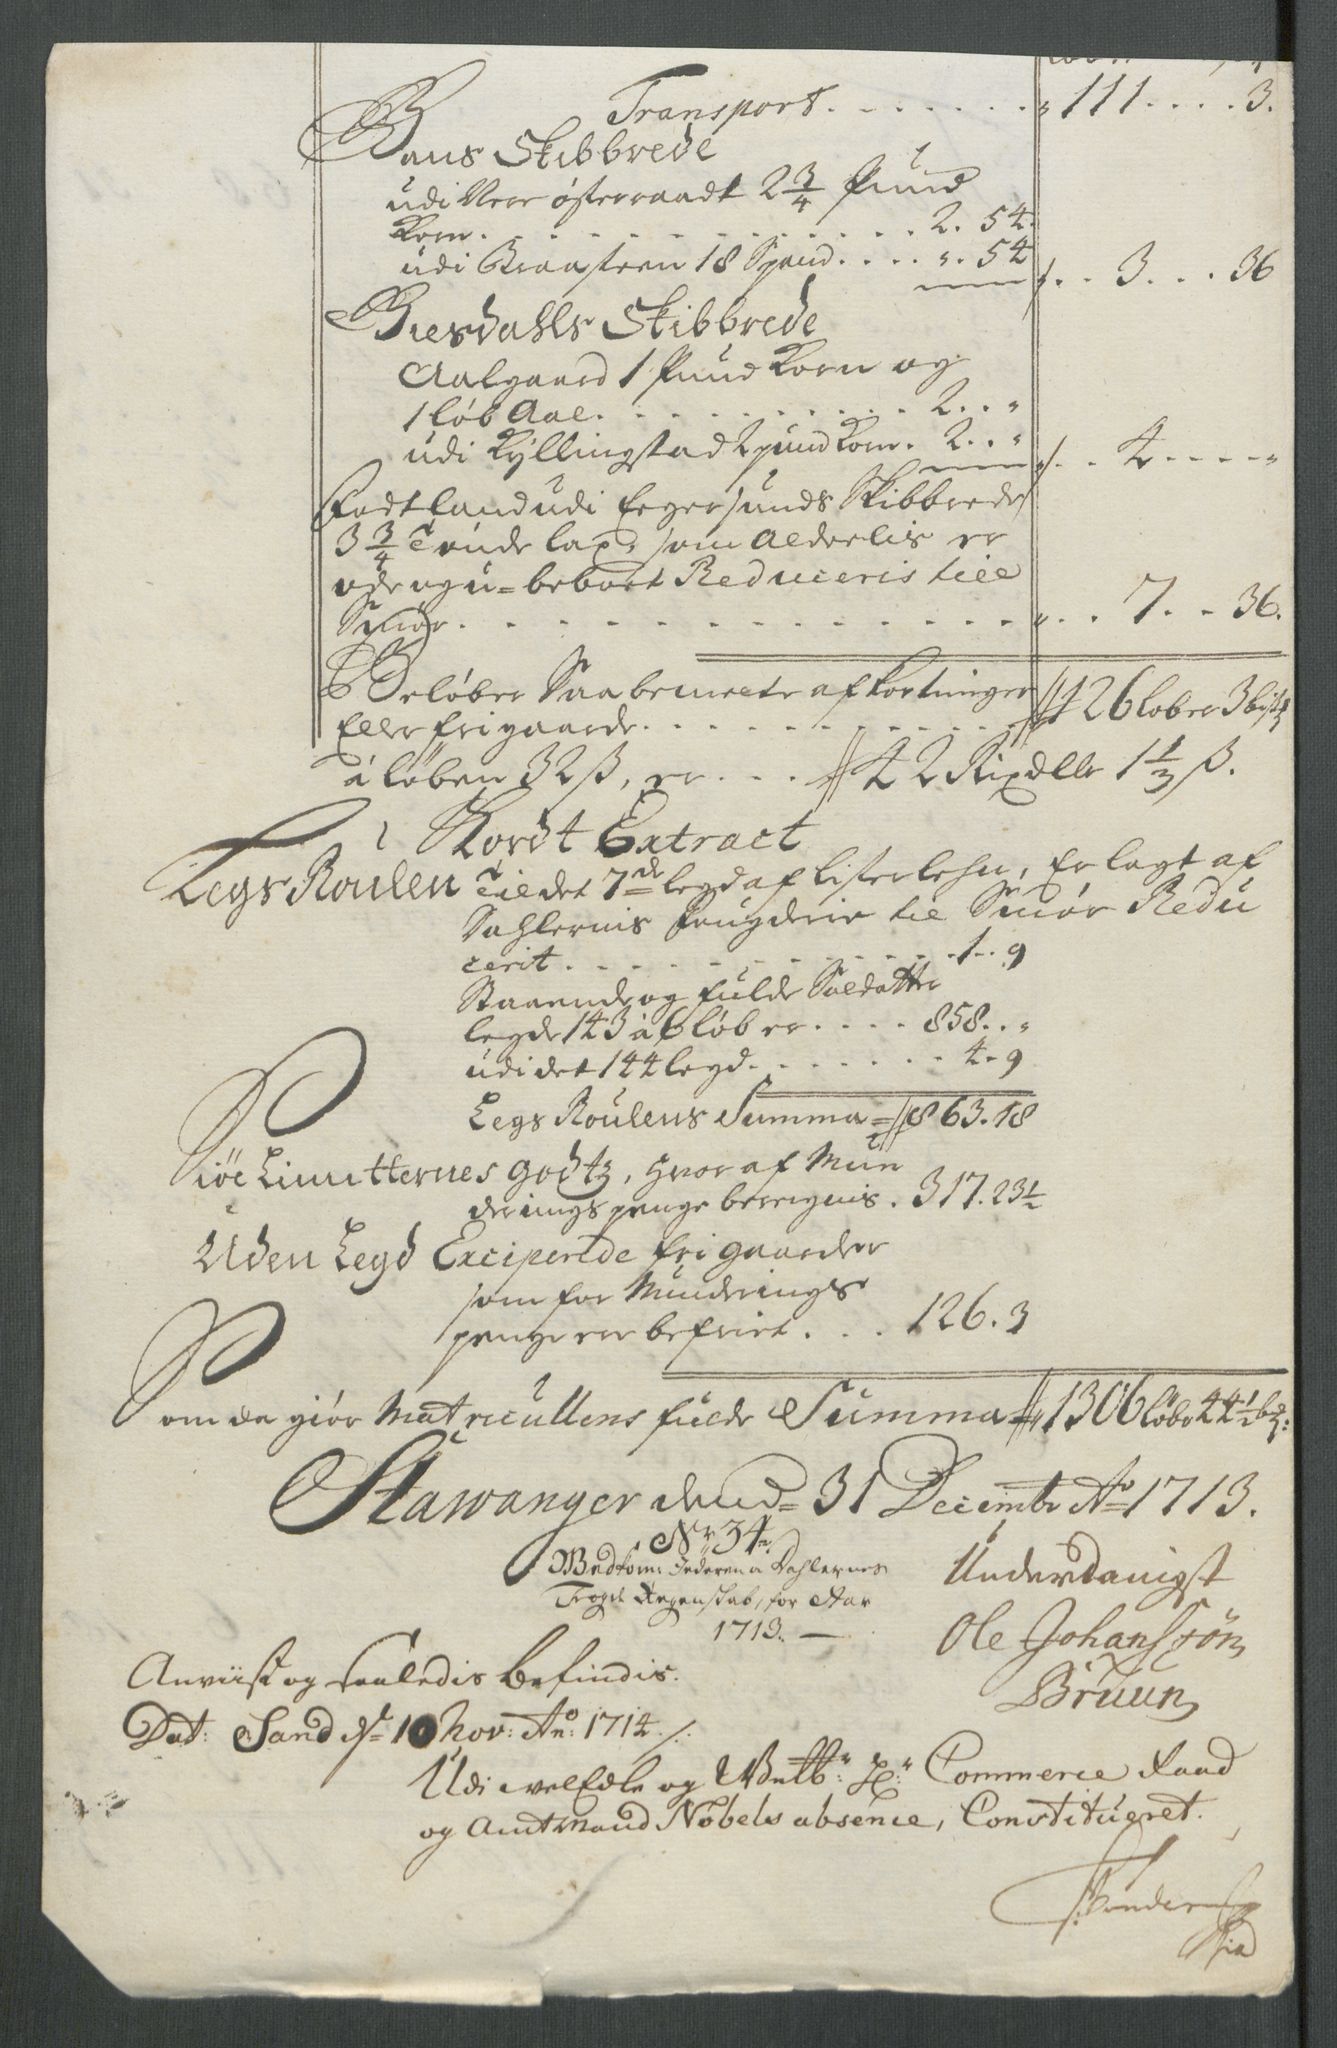 Transport . . . . . . . „ 111 . . . . 3.
Gans Skibbrede
udi Nere østerraadt 2 3/4 Pund
Korn . . . . . . . . . . . . . 2. 54.
udi Graasteen 18 Spand . . . . „ . 54
. . 3 . . . 36
Giesdahls Skibbrede
Aalgaard 1 Pund Korn og
1 løb Aal . . . . . . . . . . . 2. . „
udi Kyllingstad 2 pund Korn. 2. . „
. . 4 . . . . „
Fodtland udi Egersunds Skibbrede
3 3/4 Tønde lax, som Aldeelis er
øde og u=bebort Reduceris till
Smør . . . . . . . . . . . . . . . „ . . 7 . . 36.
Beløber Saa bemeete afkortninger
Eller frigaarde . . . . . . . . . . . 126 løber 3 bisk
à løben 32 ß, er . . . 42 Rixdlr 1 1/3 ß.
Kordt Extract
Legs Roulen Til det 7de legd af Lister lehn, Er lagt af
Dahlernis Fougderie til Smør Redu
cerit . . . . . . . . . . . . . . 1. 9
Staaende og fulde Soldatter
legde 143 à 6 løb er . . . . 858. . „
udi det 144 legd . . . . . . . 4. 9
Legs Roulens Summa = 863. 18
Siøe Limitternes godtz, hvor af Mun
derings penge beregnis . 317. 23 1/2
Uden Legd Exciperede fri gaarder
som for Munderings
penge ere befriet . . . 126. 3
Som da giør Matricullens fulde Summa 1306 løbe 44 1/2 b:
Stawanger dend 31 Decembr Ao 1713.
No 34
Vedkom: Jederen a Dahlernes
Fogd: Regenskab, for Aar
1713. —
Underdanigst
Ole Johanssøn
Bruun
Anviist og saaledis befindis.
Dat: Sand d 10 Nov: Ano: 1714 ./.
Udi velEdle og Velb: Hr: Commerce Raad
og Amtmand Nobels absence, Constitueret.